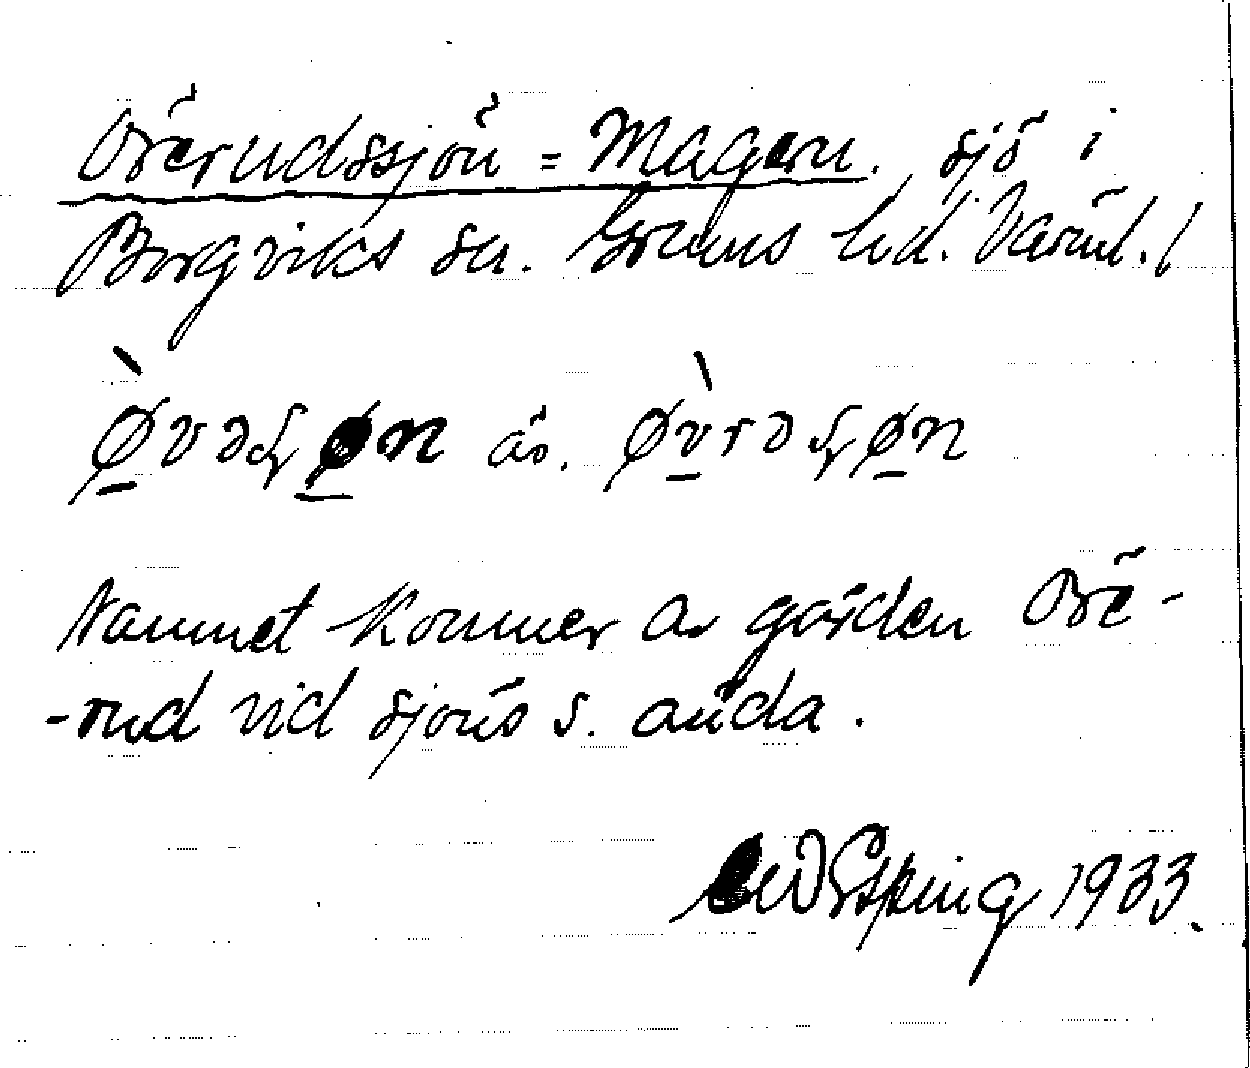 Örerudssjön = Magern. sjö i
Borgviks sn. Grums hd. Värml. /
øvdsøn äv. øvrdsøn
Namnet kommer av gården Öre-
-rud vid sjöns s. ända.
Esping 1933.